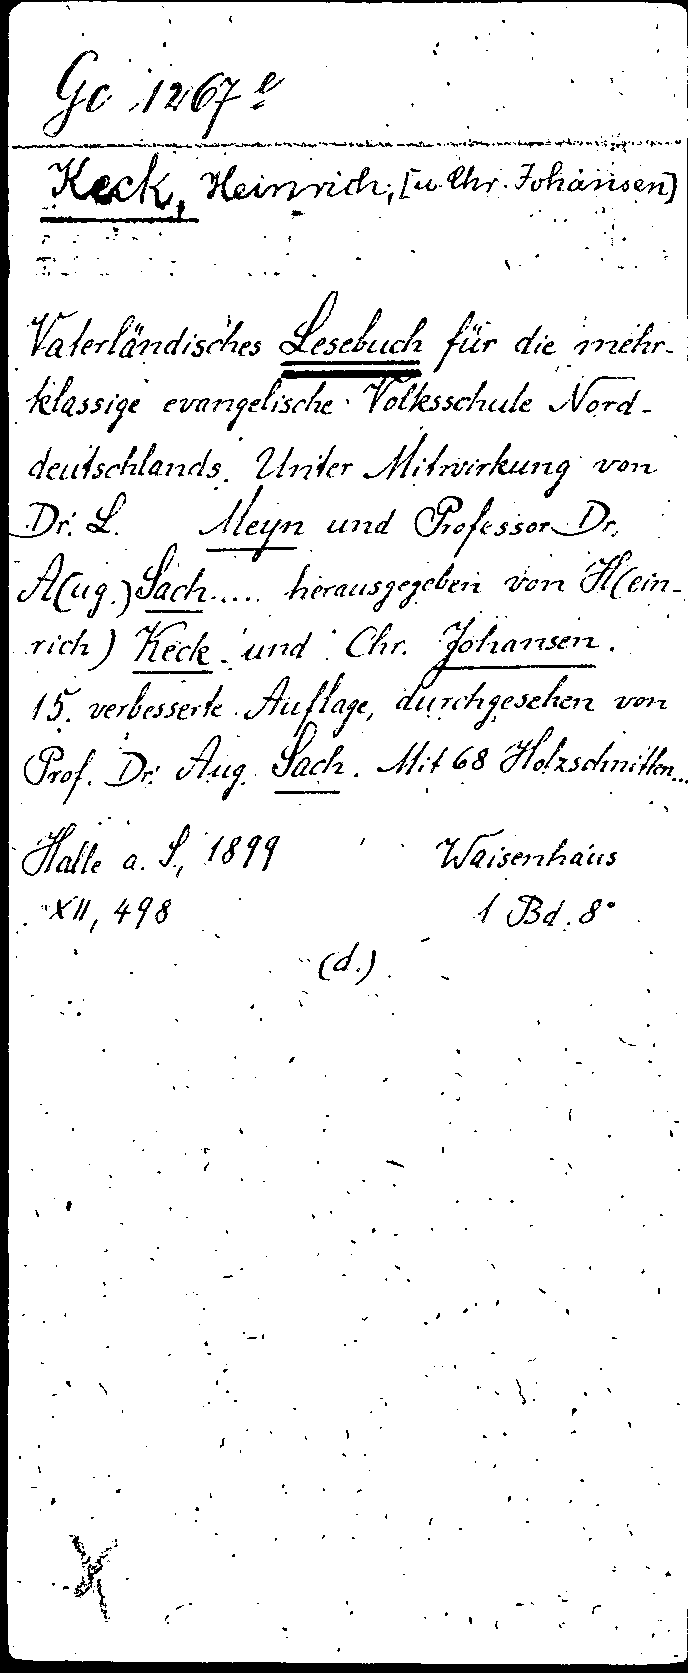 Gc 1267 e
Keck, Heinrich, [u. Chr. Johansen]
Vaterländisches Lesebuch für die mehr-
klassige evangelische Volksschule Nord-
deutschlands. Unter Mitwirkung von
Dr. L. Meyn und Professor Dr.
A(ug.) Sach..... herausgegeben von H(ein-
rich) Keck und Chr. Johansen.
15. verbesserte Auflage, durchgesehen von
Prof. Dr. Aug. Sach. Mit 68 Holzschnitten...
Halle a. S., 1899 Waisenhaus
XII, 498 1 Bd. 8°
(d.)